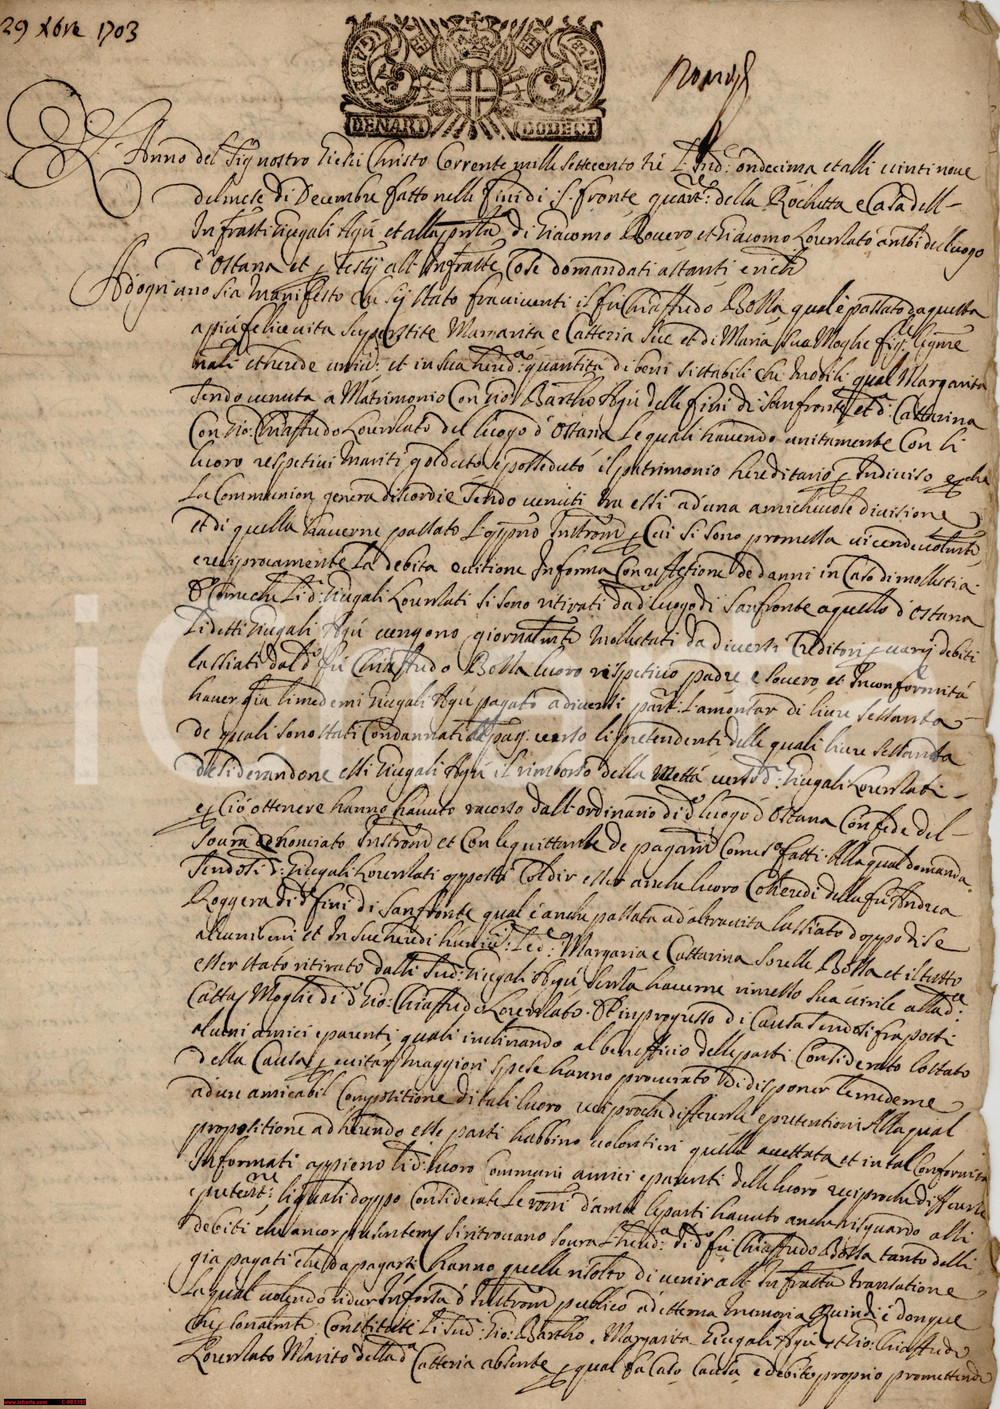 29 Xbre 1703
DENARI DODECI
L'Anno del Sig nostro Giesù Christo Corrente mille settecento tré L'Ind: ondecima et alli vinti nove
del mese di Decembre fatto nelle fini di S. fronte quart: della Rochetta e Casa dell-
Infratti Giugali Agù et alla pntia di Giacomo Rovero et Giacomo Lorenlato ambi del luogo
d'Ostana et p testij all' Infratte Cose domandati astanti e rich
Ad ogn'uno sia manifesto che sij stato fra viventi il fu Chiaffredo Bossa qual é passato da questa
a più felice vita superstite Margarita e Catterina sue et di Maria sua Moglie
nali et herede univ: et in sua hered: quantità di beni si stabili che mobili qual Margarita
sendo venuta a Matrimonio Con Gio Bartho Agù delle fini di Sanfronte et d: Cattarina
Con Gio: Chiaffredo Lorenlato del luogo d'Ostana Le quali havendo unitamente Con li
luoro respetivi mariti golduto e posseduto il patrimonio hereditario p Indiviso e che
La Communion genera discordie sendo venuti tra essi ad una amichevole divisione
et di quella haverne passato L' Instrom p Cui si sono promessa vicendevolmte
e reciprocamente La debita evitione In forma Con refletione de danni in Caso di molestia
Giugali Lorenlati si sono ritirati da d luogo di Sanfronte a quello d'Ostana
Li detti Giugali Agù vengono giornalmte mollestati da diversi Creditori p varij debiti
lassiati dal d fu Chiaffredo Bossa luoro respetivo padre e Socero et In conformità
haver gia li medemi Giugali Agù pagato a diversi part: L'amontar di livre sessanta
de quali sono stati Condannati al pag: verso li pretendenti delle quali livre sessanta
desiderandone essi Giugali Agù il rimborso della Mettà verso d: Giugali Lorenlati
p Ciò ottenere hanno havuto racorso dall' ordinario di d luogo d'Ostana Con fede del
Soura enonciato Instrom et Con le quittanze de pagam Come fatti. Alla qual domanda
sendosi d: Giugali Lorenlati opposti Col dir esser anche luoro Coheredi della fu Andrea
Roggera di d fini di Sanfronte qual é anche passata ad altra vita lassiato doppo di se
alcuni beni et In sue heredi Le d: Margarita e Cattarina Sorelle Bossa et il tutto
esser stato ritirato dalli Sud: Giugali Agù senza haverne rimesso sua virile alla d:
Catta Moglie di d Gio: Chiaffredo Lorenlato. Et in progresso di Causa sendosi fraposti
alcuni amici e parenti quali inclinando al benefficio delle parti Considerato lo stato
della Causa p evitar maggiori spese hanno procurato di disponer le medeme
ad un amicabil Compositione di tali luoro reciproche differenze e pretentioni Alla qual
propositione adherendo esse parti habbino volontieri quella accettata et in tal Conformità
Informati appieno li d: luoro Communi amici e parenti delle luoro reciproche differenze
e preten: li quali doppo Considerate Le raggioni d'ambe le parti havuto anche risguardo alli
debiti che ancor presentem si ritrovano soura L'hered: di d fu Chiaffredo Bossa tanto delli
gia pagati che da pagarsi hanno quelle risolto di venir all' Infratta transatione
La qual volendo ridur In forsa d'Instrom publico ad etterna memoria Quindi é donque
che personalmte Constituti Li sud: Gio: Bartho. e Margarita Giugali Agù et Gio: Chiaffredo
Lorenlato Marito della d Catteria absente p qual fa Caso Causa e debito proprio promettendo